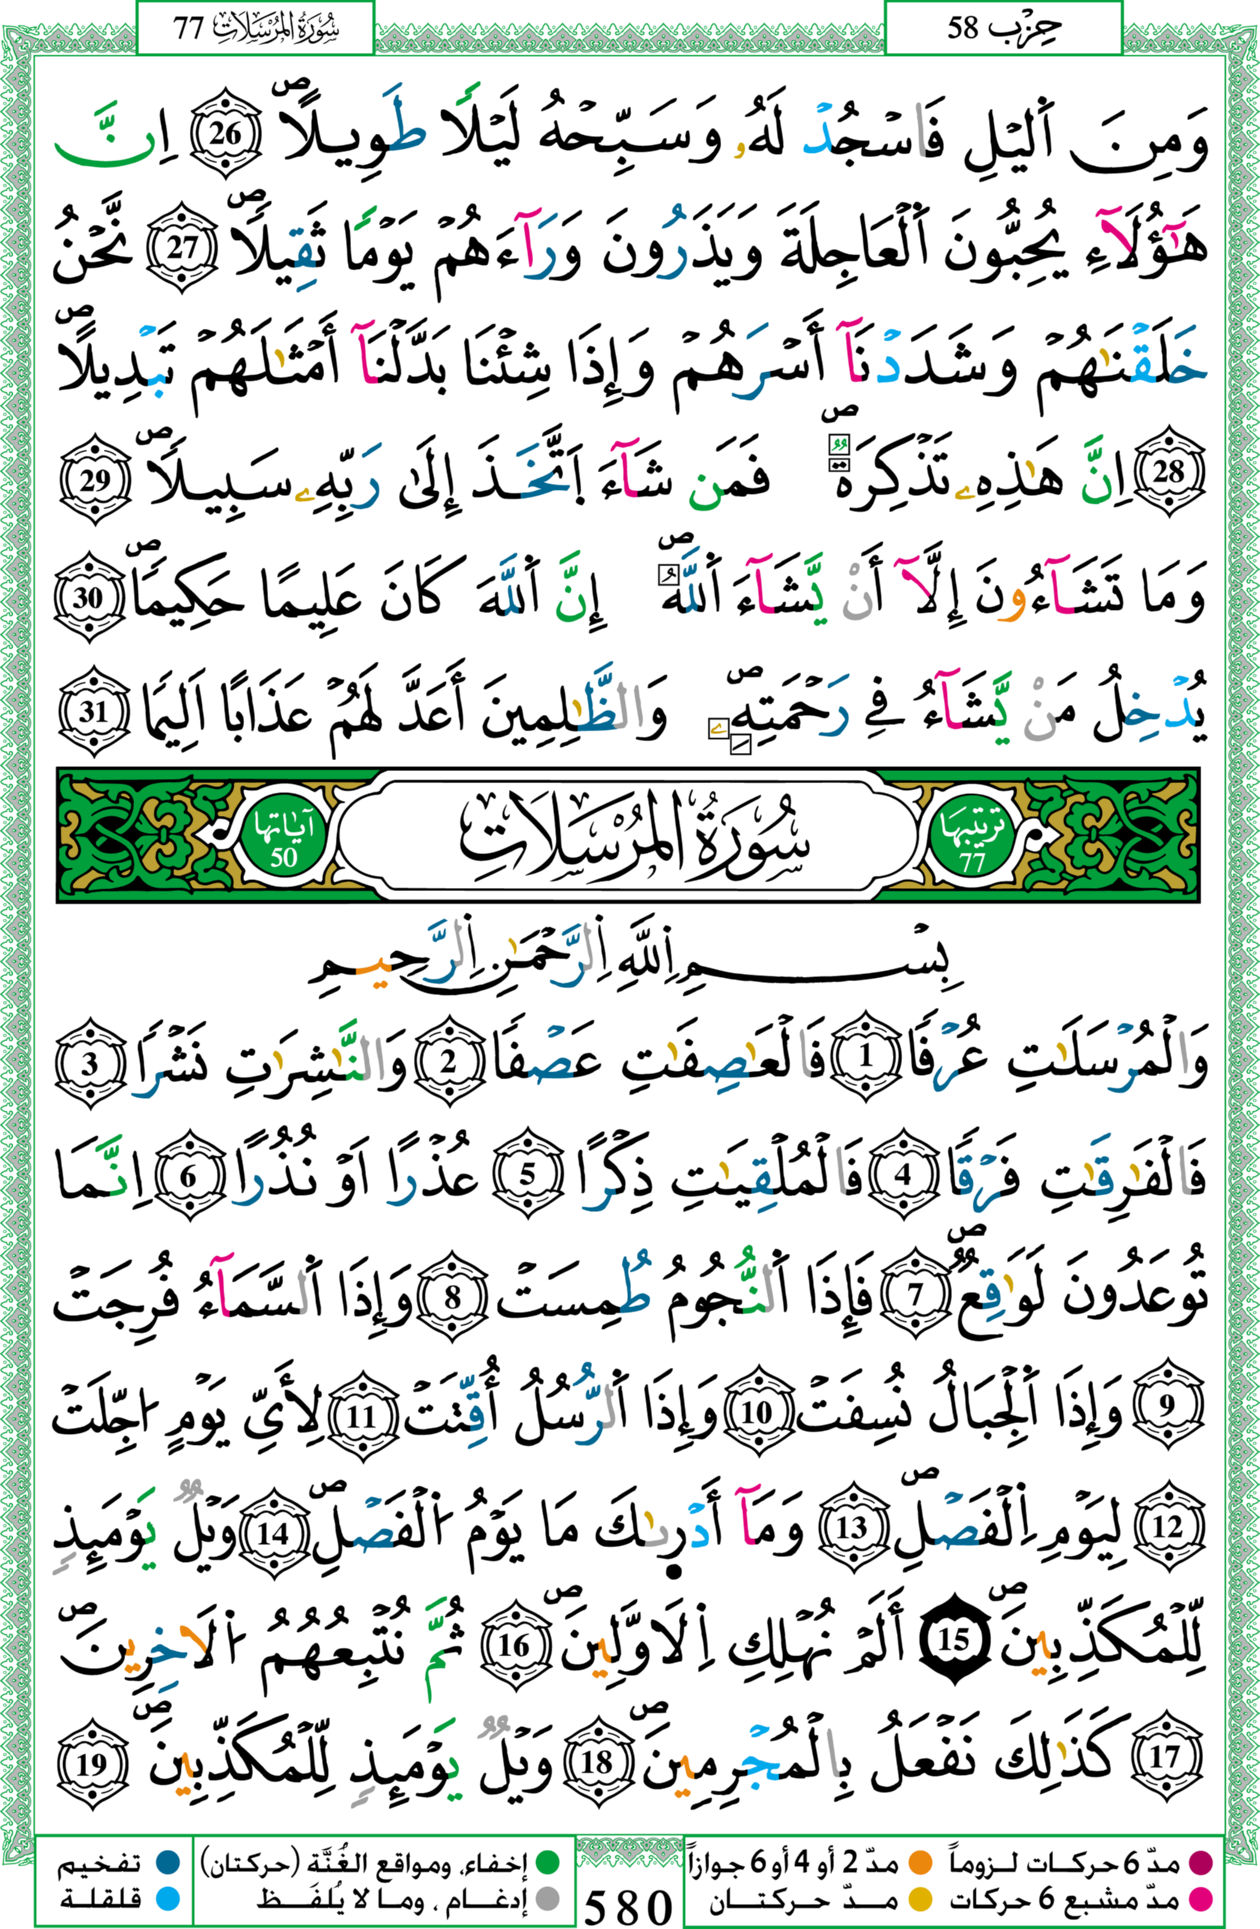 سُورَةُ المُرْسَلَاتِ 77
حِزْب 58
وَمِنَ اَ۬ليْلِ فَاسْجُدْ لَهُۥ وَسَبِّحْهُ لَيْلًا طَوِيلًاۖ 26 اِنَّ
هَٰٓؤُلَآءِ يُحِبُّونَ اَ۬لْعَاجِلَةَ وَيَذَرُونَ وَرَآءَهُمْ يَوْمًا ثَقِيلًاۖ 27 نَّحْنُ
خَلَقْنَٰهُمْ وَشَدَدْنَآ أَسْرَهُمْ وَإِذَا شِئْنَا بَدَّلْنَآ أَمْثَٰلَهُمْ تَبْدِيلًاۖ
28 اِنَّ هَٰذِهِۦ تَذْكِرَةٌۖ فَمَن شَآءَ اَ۪تَّخَذَ إِلَىٰ رَبِّهِۦ سَبِيلًاۖ 29
وَمَا تَشَآءُونَ إِلَّآ أَنْ يَّشَآءَ اَ۬للَّهُۖ إِنَّ اَ۬للَّهَ كَانَ عَلِيمًا حَكِيمًاۖ 30
يُدْخِلُ مَنْ يَّشَآءُ فِے رَحْمَتِهِۦۖ وَالظَّٰلِمِينَ أَعَدَّ لَهُمْ عَذَابًا اَلِيمًا 31
ترتيبها 77
سُورَةُ المُرْسَلَاتِ
آياتها 50
بِسْمِ اِ۬للَّهِ اِ۬لرَّحْمَٰنِ اِ۬لرَّحِيمِ
وَالْمُرْسَلَٰتِ عُرْفًا 1 فَالْعَٰصِفَٰتِ عَصْفًا 2 وَالنَّٰشِرَٰتِ نَشْرًا 3
فَالْفَٰرِقَٰتِ فَرْقًا 4 فَالْمُلْقِيَٰتِ ذِكْرًا 5 عُذْرًا اَوْ نُذُرًا 6 اِنَّمَا
تُوعَدُونَ لَوَٰقِعٌۖ 7 فَإِذَا اَ۬لنُّجُومُ طُمِسَتْ 8 وَإِذَا اَ۬لسَّمَآءُ فُرِجَتْ
9 وَإِذَا اَ۬لْجِبَالُ نُسِفَتْ 10 وَإِذَا اَ۬لرُّسُلُ أُقِّتَتْ 11 لِأَيِّ يَوْمٍ ا۟جِّلَتْ
12 لِيَوْمِ اِ۬لْفَصْلِۖ 13 وَمَآ أَدْر۪ىٰكَ مَا يَوْمُ اُ۬لْفَصْلِۖ 14 وَيْلٌ يَوْمَئِذٍ
لِّلْمُكَذِّبِينَۖ 15 أَلَمْ نُهْلِكِ اِ۬لَاوَّلِينَۖ 16 ثُمَّ نُتْبِعُهُمُ اُ۬لَاخِرِينَۖ
17 كَذَٰلِكَ نَفْعَلُ بِالْمُجْرِمِينَۖ 18 وَيْلٌ يَوْمَئِذٍ لِّلْمُكَذِّبِينَۖ 19
مدّ 6 حركات لـزوماً مدّ 2 أو 4 أو 6 جوازاً
مدّ مشبع 6 حركات مـدّ حركتـان
580
إخفاء، ومواقع الغُنَّة (حركتان) تفخيم
إدغـام ، ومـا لا يُلفَـظ قلقلة